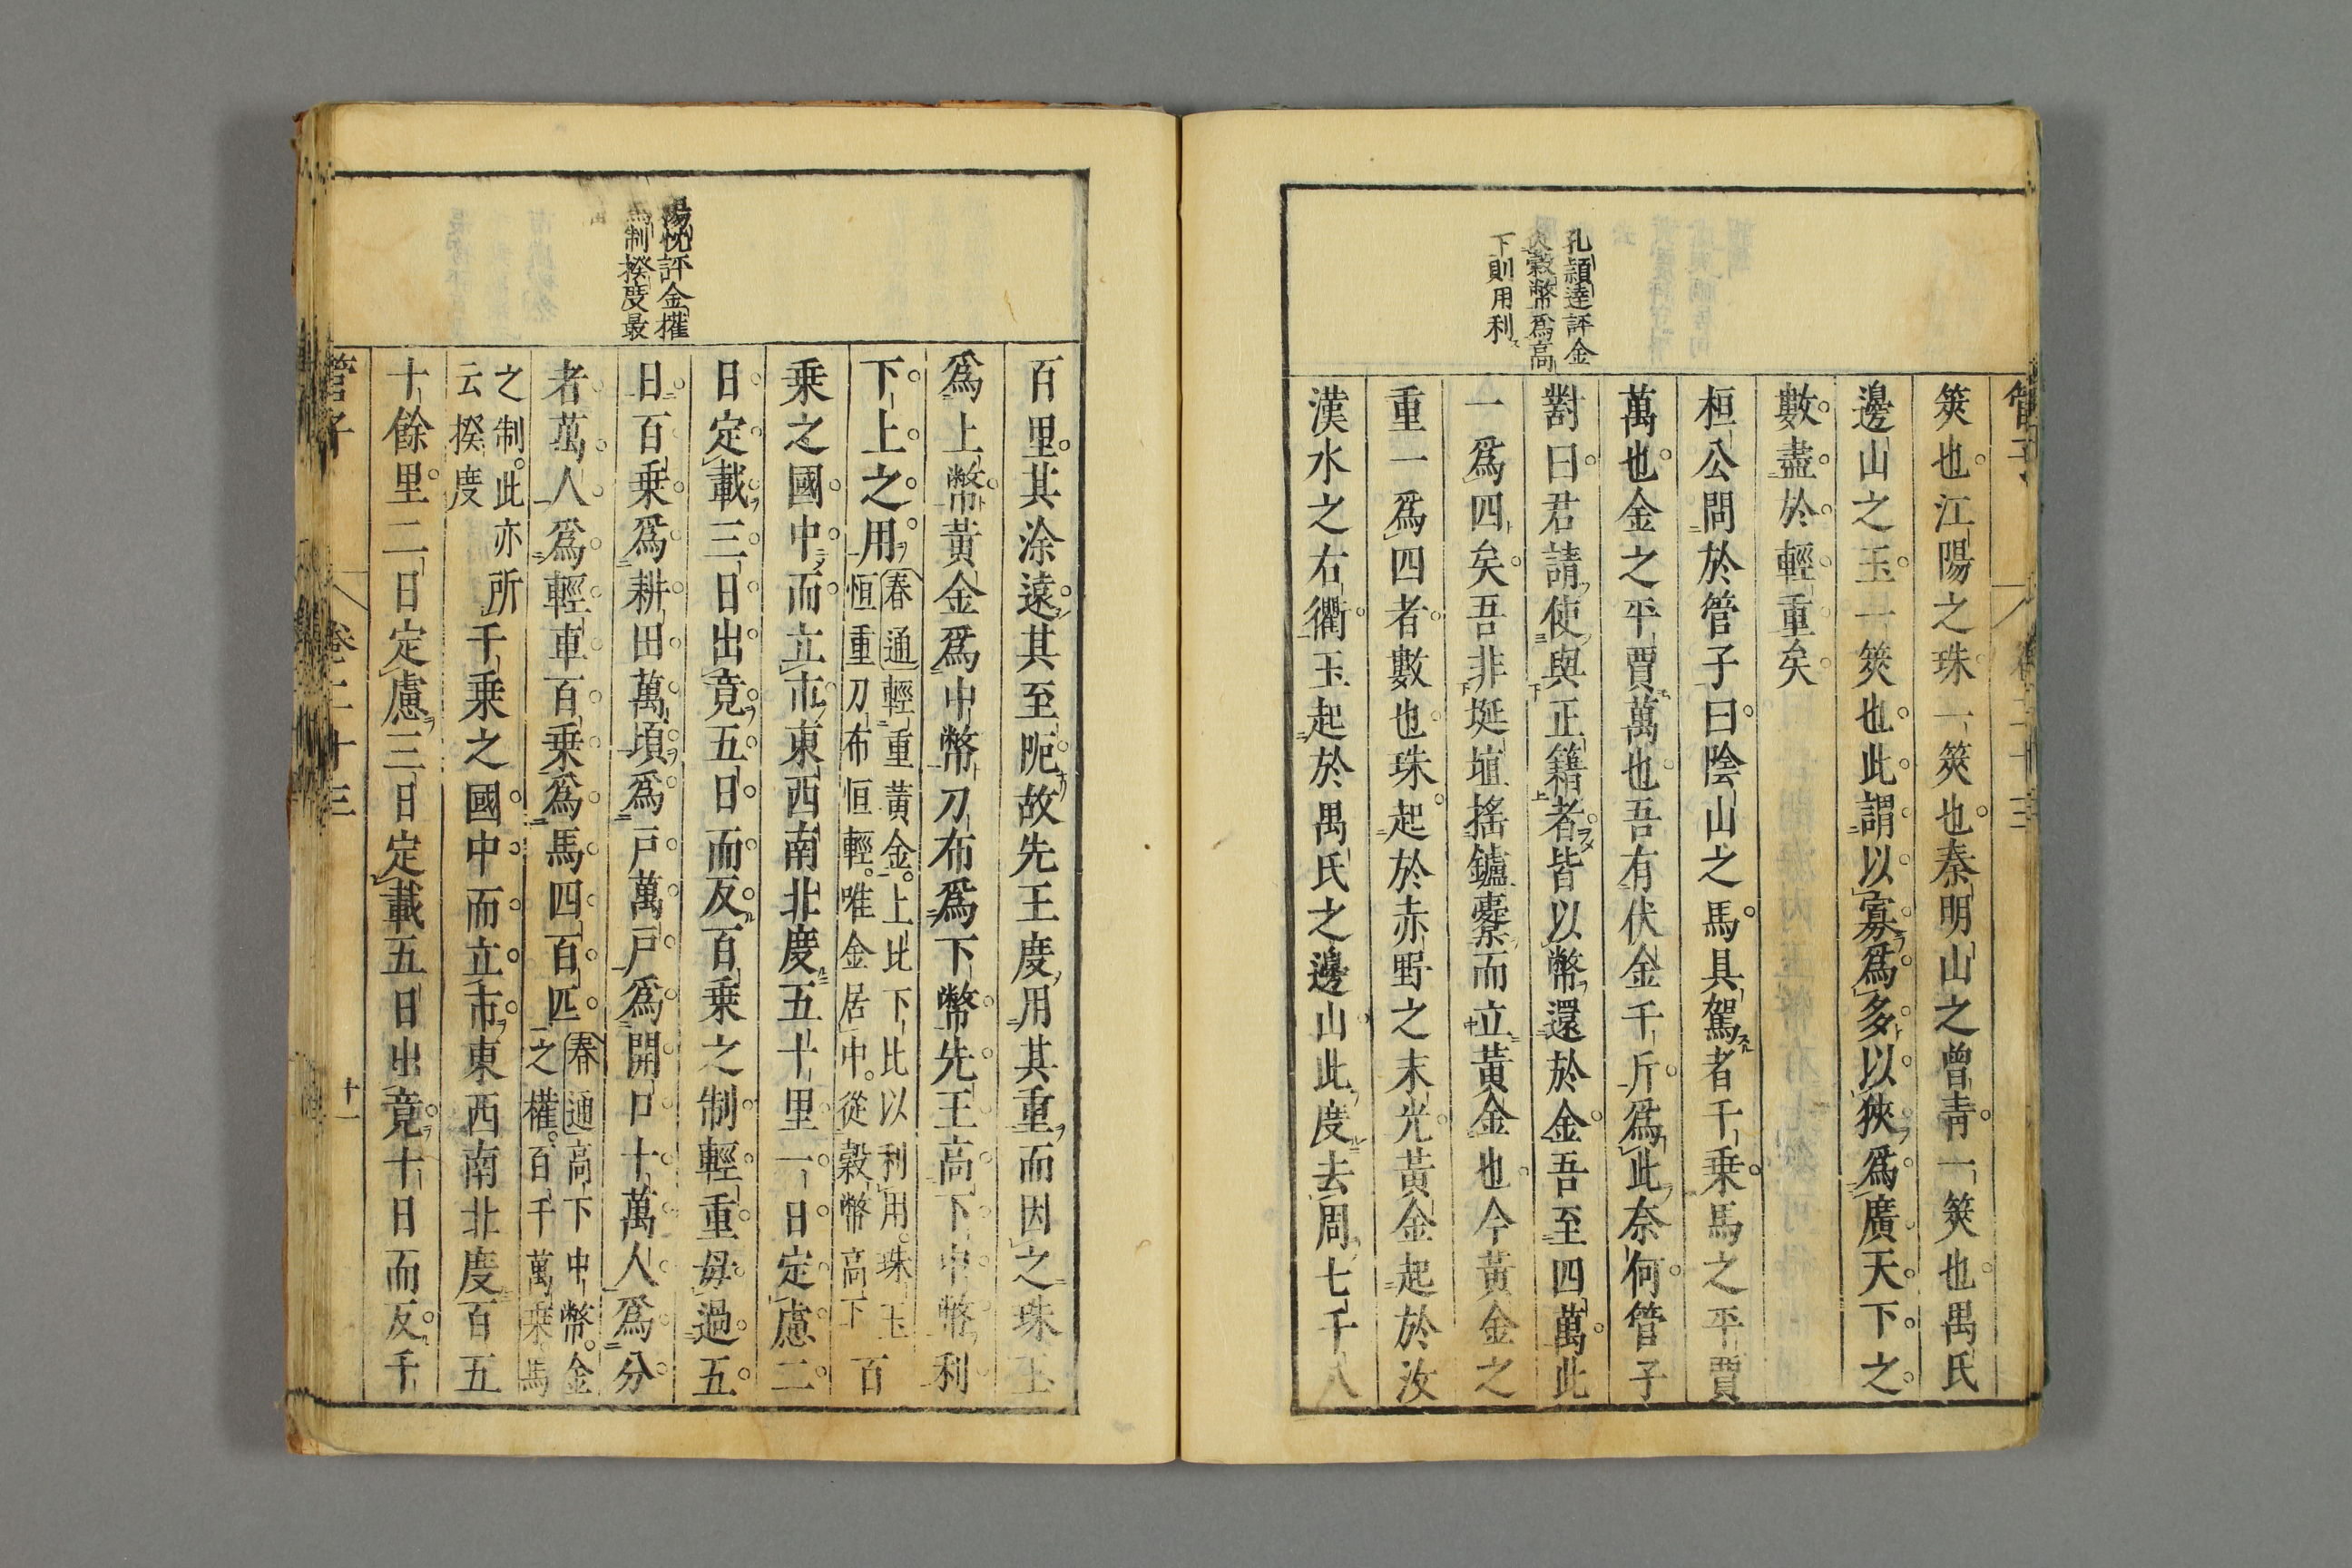 管子 卷二十三
筴也江陽之珠一筴也秦明山之曾青一筴也禺氏
邊山之玉一筴也此謂以寡爲多以狹爲廣天下之
數盡於輕重矣
桓公問於管子曰陰山之馬具駕者千乗馬之平賈
萬也金之平賈萬也吾有伏金千斤爲此奈何管子
對曰君請使與正籍者皆以幣還於金吾至四萬此
一爲四矣吾非埏埴搖鑪櫜而立黃金也今黃金之
重一爲四者數也珠起於赤野之末光黃金起於汝
漢水之右衢玉起於禺氏之邊山此度去周七千八
孔頴達評金
穀幣爲高
下則用利
百里其涂遠其至阨故先王度用其重而因之珠玉
爲上幣黃金爲中幣刀布爲下幣先王高下中幣利
下上之用
春通輕重黃金上比下比以利用珠玉
恒重刀布恒輕唯金居中從穀幣高下
百
乗之國中而立市東西南北度五十里一日定慮二
日定載三日出竟五日而反百乗之制輕重毋過五
日百乗爲耕田萬頃爲戸萬戸爲開口十萬人爲分
者萬人爲輕車百乗爲馬四百匹
春通高下中幣金
之權百千萬乗馬
之制此亦所
云揆度
千乗之國中而立市東西南北度百五
十餘里二日定慮三日定載五日出竟十日而反千
楊忱評金權
制揆度最
管子 卷二十三 十一